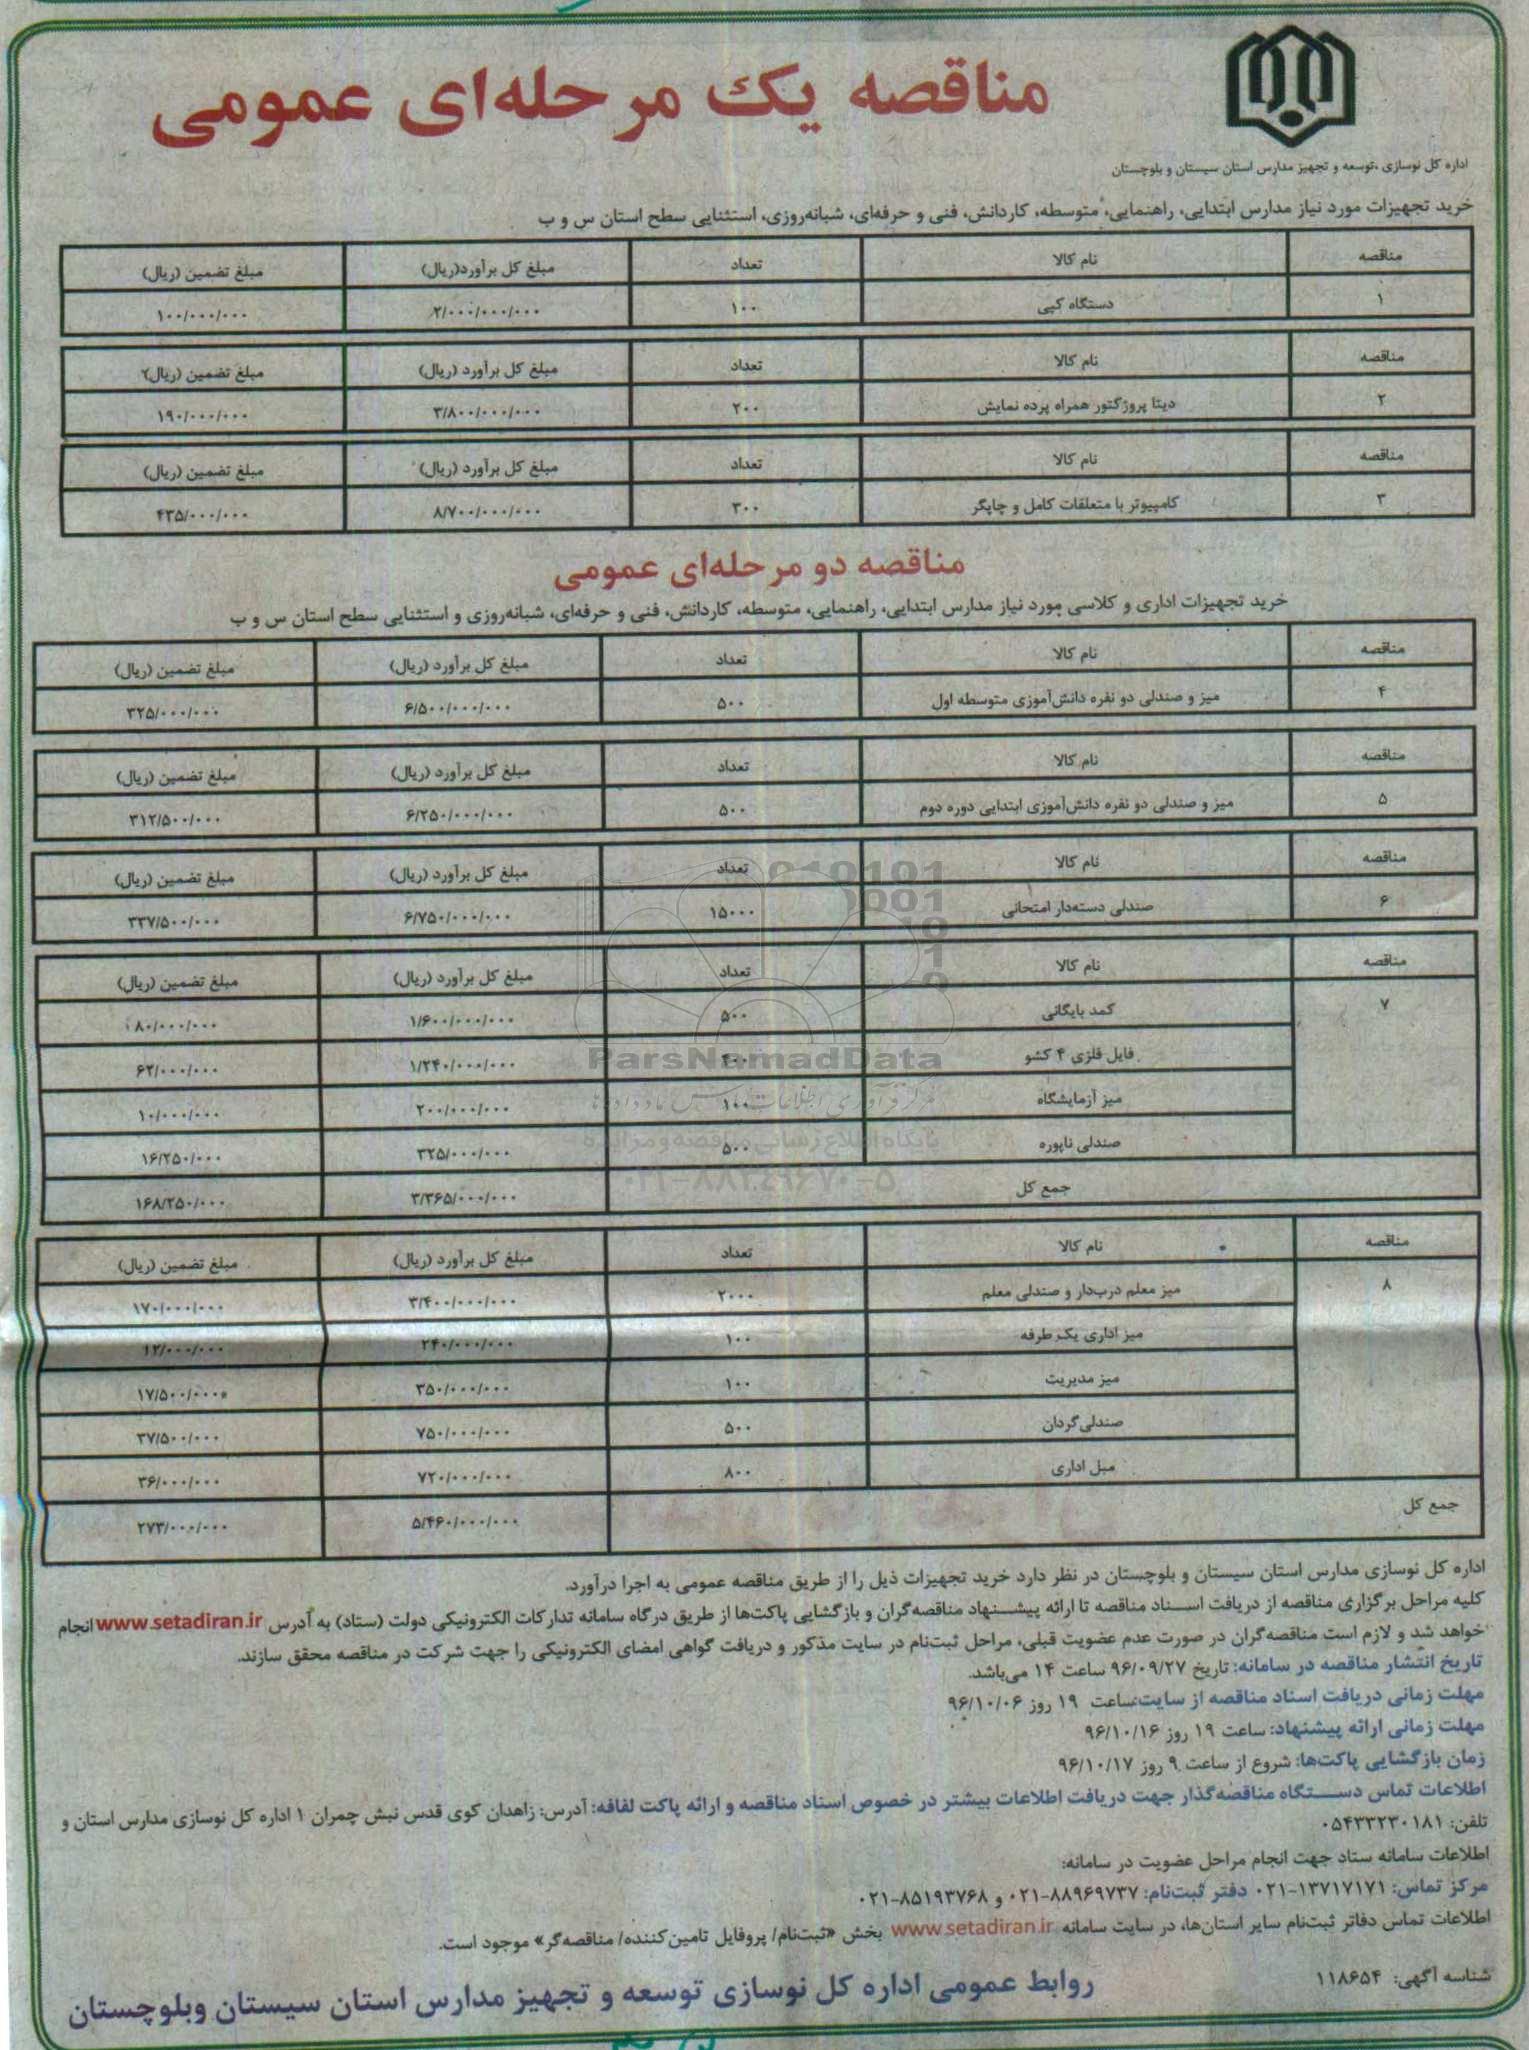 مناقصه یک مرحله‌ای عمومی
اداره کل نوسازی ،توسعه و تجهیز مدارس استان سیستان و بلوچستان
خرید تجهیزات مورد نیاز مدارس ابتدایی، راهنمایی، متوسطه، کاردانش، فنی و حرفه‌ای، شبانه‌روزی، استثنایی سطح استان س و ب
مناقصه نام کالا تعداد مبلغ کل برآورد(ریال) مبلغ تضمین (ریال)
۱ دستگاه کپی ۱۰۰ ۲/۰۰۰/۰۰۰/۰۰۰ ۱۰۰/۰۰۰/۰۰۰
مناقصه نام کالا تعداد مبلغ کل برآورد (ریال) مبلغ تضمین (ریال)
۲ دیتا پروژکتور همراه پرده نمایش ۲۰۰ ۳/۸۰۰/۰۰۰/۰۰۰ ۱۹۰/۰۰۰/۰۰۰
مناقصه نام کالا تعداد مبلغ کل برآورد (ریال) مبلغ تضمین (ریال)
۳ کامپیوتر با متعلقات کامل و چاپگر ۳۰۰ ۸/۷۰۰/۰۰۰/۰۰۰ ۴۳۵/۰۰۰/۰۰۰
مناقصه دو مرحله‌ای عمومی
خرید تجهیزات اداری و کلاسی مورد نیاز مدارس ابتدایی، راهنمایی، متوسطه، کاردانش، فنی و حرفه‌ای، شبانه‌روزی و استثنایی سطح استان س و ب
مناقصه نام کالا تعداد مبلغ کل برآورد (ریال) مبلغ تضمین (ریال)
۴ میز و صندلی دو نفره دانش‌آموزی متوسطه اول ۵۰۰ ۶/۵۰۰/۰۰۰/۰۰۰ ۳۲۵/۰۰۰/۰۰۰
مناقصه نام کالا تعداد مبلغ کل برآورد (ریال) مبلغ تضمین (ریال)
۵ میز و صندلی دو نفره دانش‌آموزی ابتدایی دوره دوم ۵۰۰ ۶/۲۵۰/۰۰۰/۰۰۰ ۳۱۲/۵۰۰/۰۰۰
مناقصه نام کالا تعداد مبلغ کل برآورد (ریال) مبلغ تضمین (ریال)
۶ صندلی دسته‌دار امتحانی ۱۵۰۰۰ ۶/۷۵۰/۰۰۰/۰۰۰ ۳۳۷/۵۰۰/۰۰۰
مناقصه نام کالا تعداد مبلغ کل برآورد (ریال) مبلغ تضمین (ریال)
۷ کمد بایگانی ۵۰۰ ۱/۶۰۰/۰۰۰/۰۰۰ ۸۰/۰۰۰/۰۰۰
فایل فلزی ۴ کشو ۱/۲۴۰/۰۰۰/۰۰۰ ۶۲/۰۰۰/۰۰۰
ParsNamadData
میز آزمایشگاه ۱۰۰ ۲۰۰/۰۰۰/۰۰۰ ۱۰/۰۰۰/۰۰۰
صندلی تابوره ۵۰۰ ۳۲۵/۰۰۰/۰۰۰ ۱۶/۲۵۰/۰۰۰
جمع کل ۳/۳۶۵/۰۰۰/۰۰۰ ۱۶۸/۲۵۰/۰۰۰
مناقصه نام کالا تعداد مبلغ کل برآورد (ریال) مبلغ تضمین (ریال)
۸ میز معلم درب‌دار و صندلی معلم ۲۰۰۰ ۳/۴۰۰/۰۰۰/۰۰۰ ۱۷۰/۰۰۰/۰۰۰
میز اداری یک طرفه ۱۰۰ ۲۴۰/۰۰۰/۰۰۰ ۱۲/۰۰۰/۰۰۰
میز مدیریت ۱۰۰ ۳۵۰/۰۰۰/۰۰۰ ۱۷/۵۰۰/۰۰۰
صندلی‌گردان ۵۰۰ ۷۵۰/۰۰۰/۰۰۰ ۳۷/۵۰۰/۰۰۰
مبل اداری ۸۰۰ ۷۲۰/۰۰۰/۰۰۰ ۳۶/۰۰۰/۰۰۰
جمع کل ۵/۴۶۰/۰۰۰/۰۰۰ ۲۷۳/۰۰۰/۰۰۰
اداره کل نوسازی مدارس استان سیستان و بلوچستان در نظر دارد خرید تجهیزات ذیل را از طریق مناقصه عمومی به اجرا درآورد.
کلیه مراحل برگزاری مناقصه از دریافت اسناد مناقصه تا ارائه پیشنهاد مناقصه‌گران و بازگشایی پاکت‌ها از طریق درگاه سامانه تدارکات الکترونیکی دولت (ستاد) به آدرس www.setadiran.ir انجام
خواهد شد و لازم است مناقصه‌گران در صورت عدم عضویت قبلی، مراحل ثبت‌نام در سایت مذکور و دریافت گواهی امضای الکترونیکی را جهت شرکت در مناقصه محقق سازند.
تاریخ انتشار مناقصه در سامانه: تاریخ ۹۶/۰۹/۲۷ ساعت ۱۴ می‌باشد.
مهلت زمانی دریافت اسناد مناقصه از سایت:ساعت ۱۹ روز ۹۶/۱۰/۰۶
مهلت زمانی ارائه پیشنهاد: ساعت ۱۹ روز ۹۶/۱۰/۱۶
زمان بازگشایی پاکت‌ها: شروع از ساعت ۹ روز ۹۶/۱۰/۱۷
اطلاعات تماس دستگاه مناقصه‌گذار جهت دریافت اطلاعات بیشتر در خصوص اسناد مناقصه و ارائه پاکت لفافه: آدرس: زاهدان کوی قدس نبش چمران ۱ اداره کل نوسازی مدارس استان و
تلفن: ۰۵۴۳۳۲۳۰۱۸۱
اطلاعات سامانه ستاد جهت انجام مراحل عضویت در سامانه:
مرکز تماس: ۱۳۷۱۷۱۷۱-۰۲۱ دفتر ثبت‌نام: ۸۸۹۶۹۷۳۷-۰۲۱ و ۸۵۱۹۳۷۶۸-۰۲۱
اطلاعات تماس دفاتر ثبت‌نام سایر استان‌ها، در سایت سامانه www.setadiran.ir بخش «ثبت‌نام/ پروفایل تامین‌کننده/ مناقصه‌گر» موجود است.
شناسه آگهی: ۱۱۸۶۵۴
روابط عمومی اداره کل نوسازی توسعه و تجهیز مدارس استان سیستان وبلوچستان